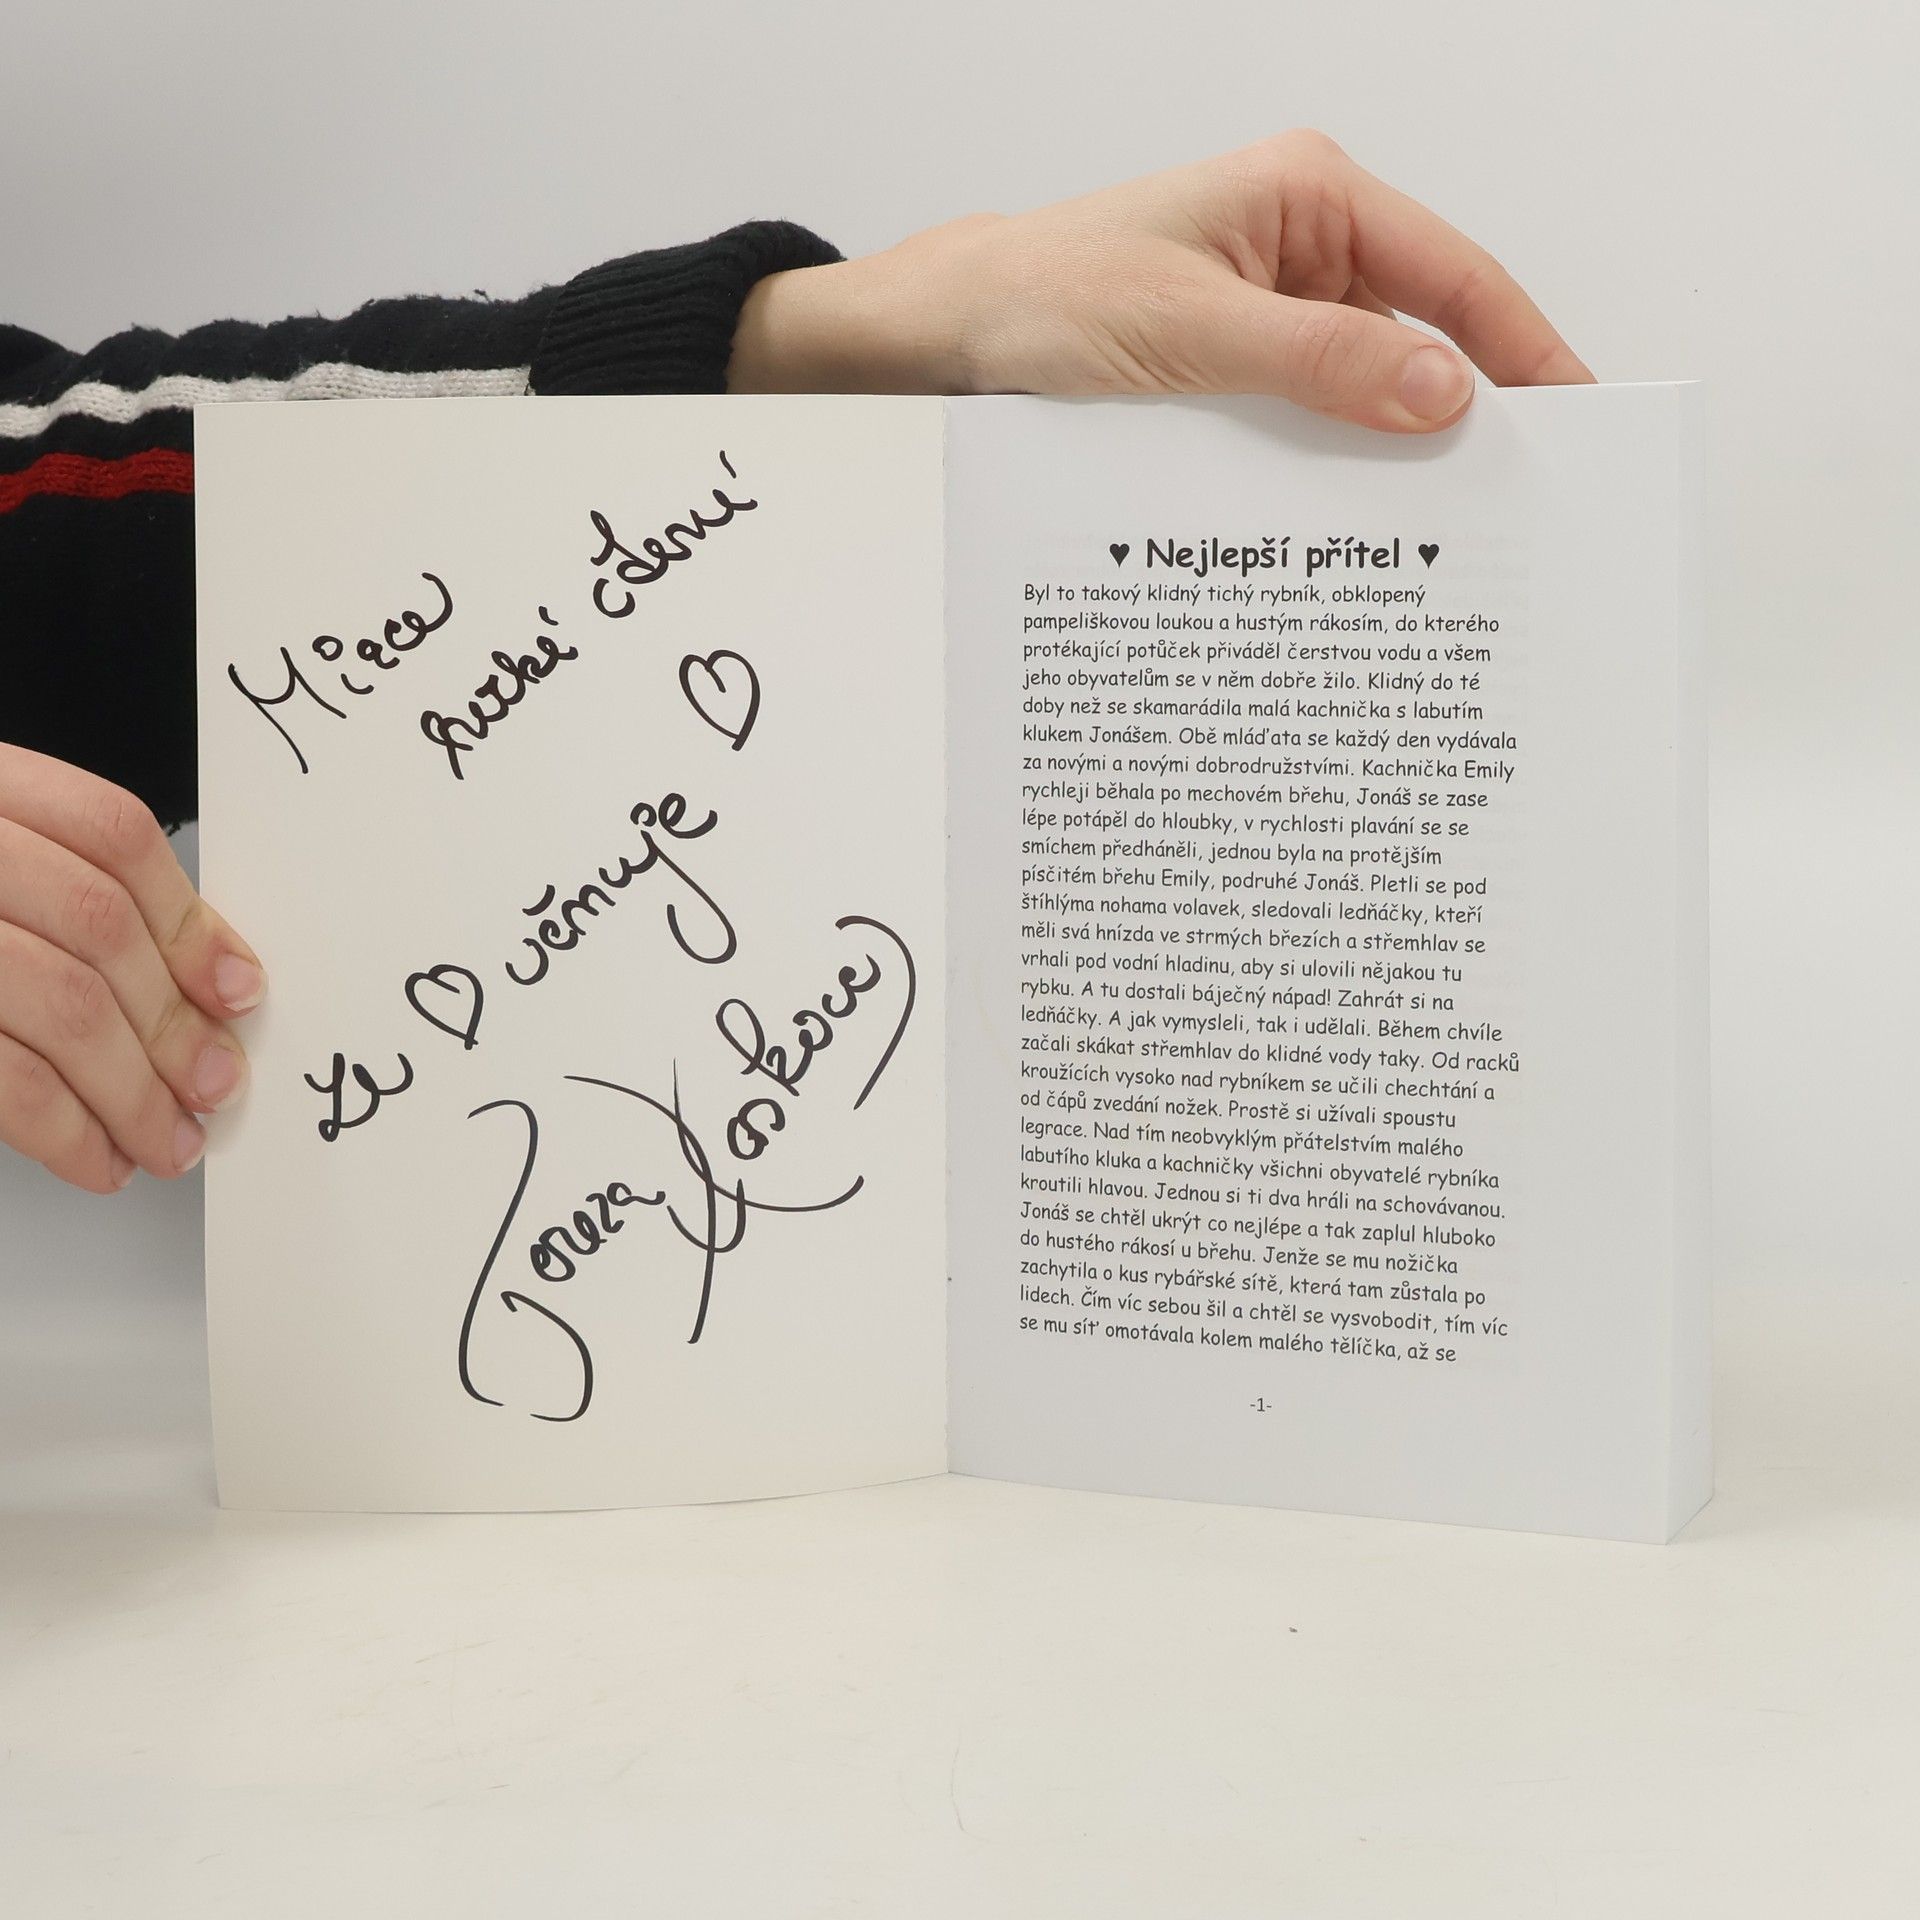 hezké čtení
Ze věnuje
♥ Nejlepší přítel ♥
Byl to takový klidný tichý rybník, obklopený
pampeliškovou loukou a hustým rákosím, do kterého
protékající potůček přiváděl čerstvou vodu a všem
jeho obyvatelům se v něm dobře žilo. Klidný do té
doby než se skamarádila malá kachnička s labutím
klukem Jonášem. Obě mláďata se každý den vydávala
za novými a novými dobrodružstvími. Kachnička Emily
rychleji běhala po mechovém břehu, Jonáš se zase
lépe potápěl do hloubky, v rychlosti plavání se se
smíchem předháněli, jednou byla na protějším
písčitém břehu Emily, podruhé Jonáš. Pletli se pod
štíhlýma nohama volavek, sledovali ledňáčky, kteří
měli svá hnízda ve strmých březích a střemhlav se
vrhali pod vodní hladinu, aby si ulovili nějakou tu
rybku. A tu dostali báječný nápad! Zahrát si na
ledňáčky. A jak vymysleli, tak i udělali. Během chvíle
začali skákat střemhlav do klidné vody taky. Od racků
kroužících vysoko nad rybníkem se učili chechtání a
od čápů zvedání nožek. Prostě si užívali spoustu
legrace. Nad tím neobvyklým přátelstvím malého
labutího kluka a kachničky všichni obyvatelé rybníka
kroutili hlavou. Jednou si ti dva hráli na schovávanou.
Jonáš se chtěl ukrýt co nejlépe a tak zaplul hluboko
do hustého rákosí u břehu. Jenže se mu nožička
zachytila o kus rybářské sítě, která tam zůstala po
lidech. Čím víc sebou šil a chtěl se vysvobodit, tím víc
se mu síť omotávala kolem malého tělíčka, až se
-1-